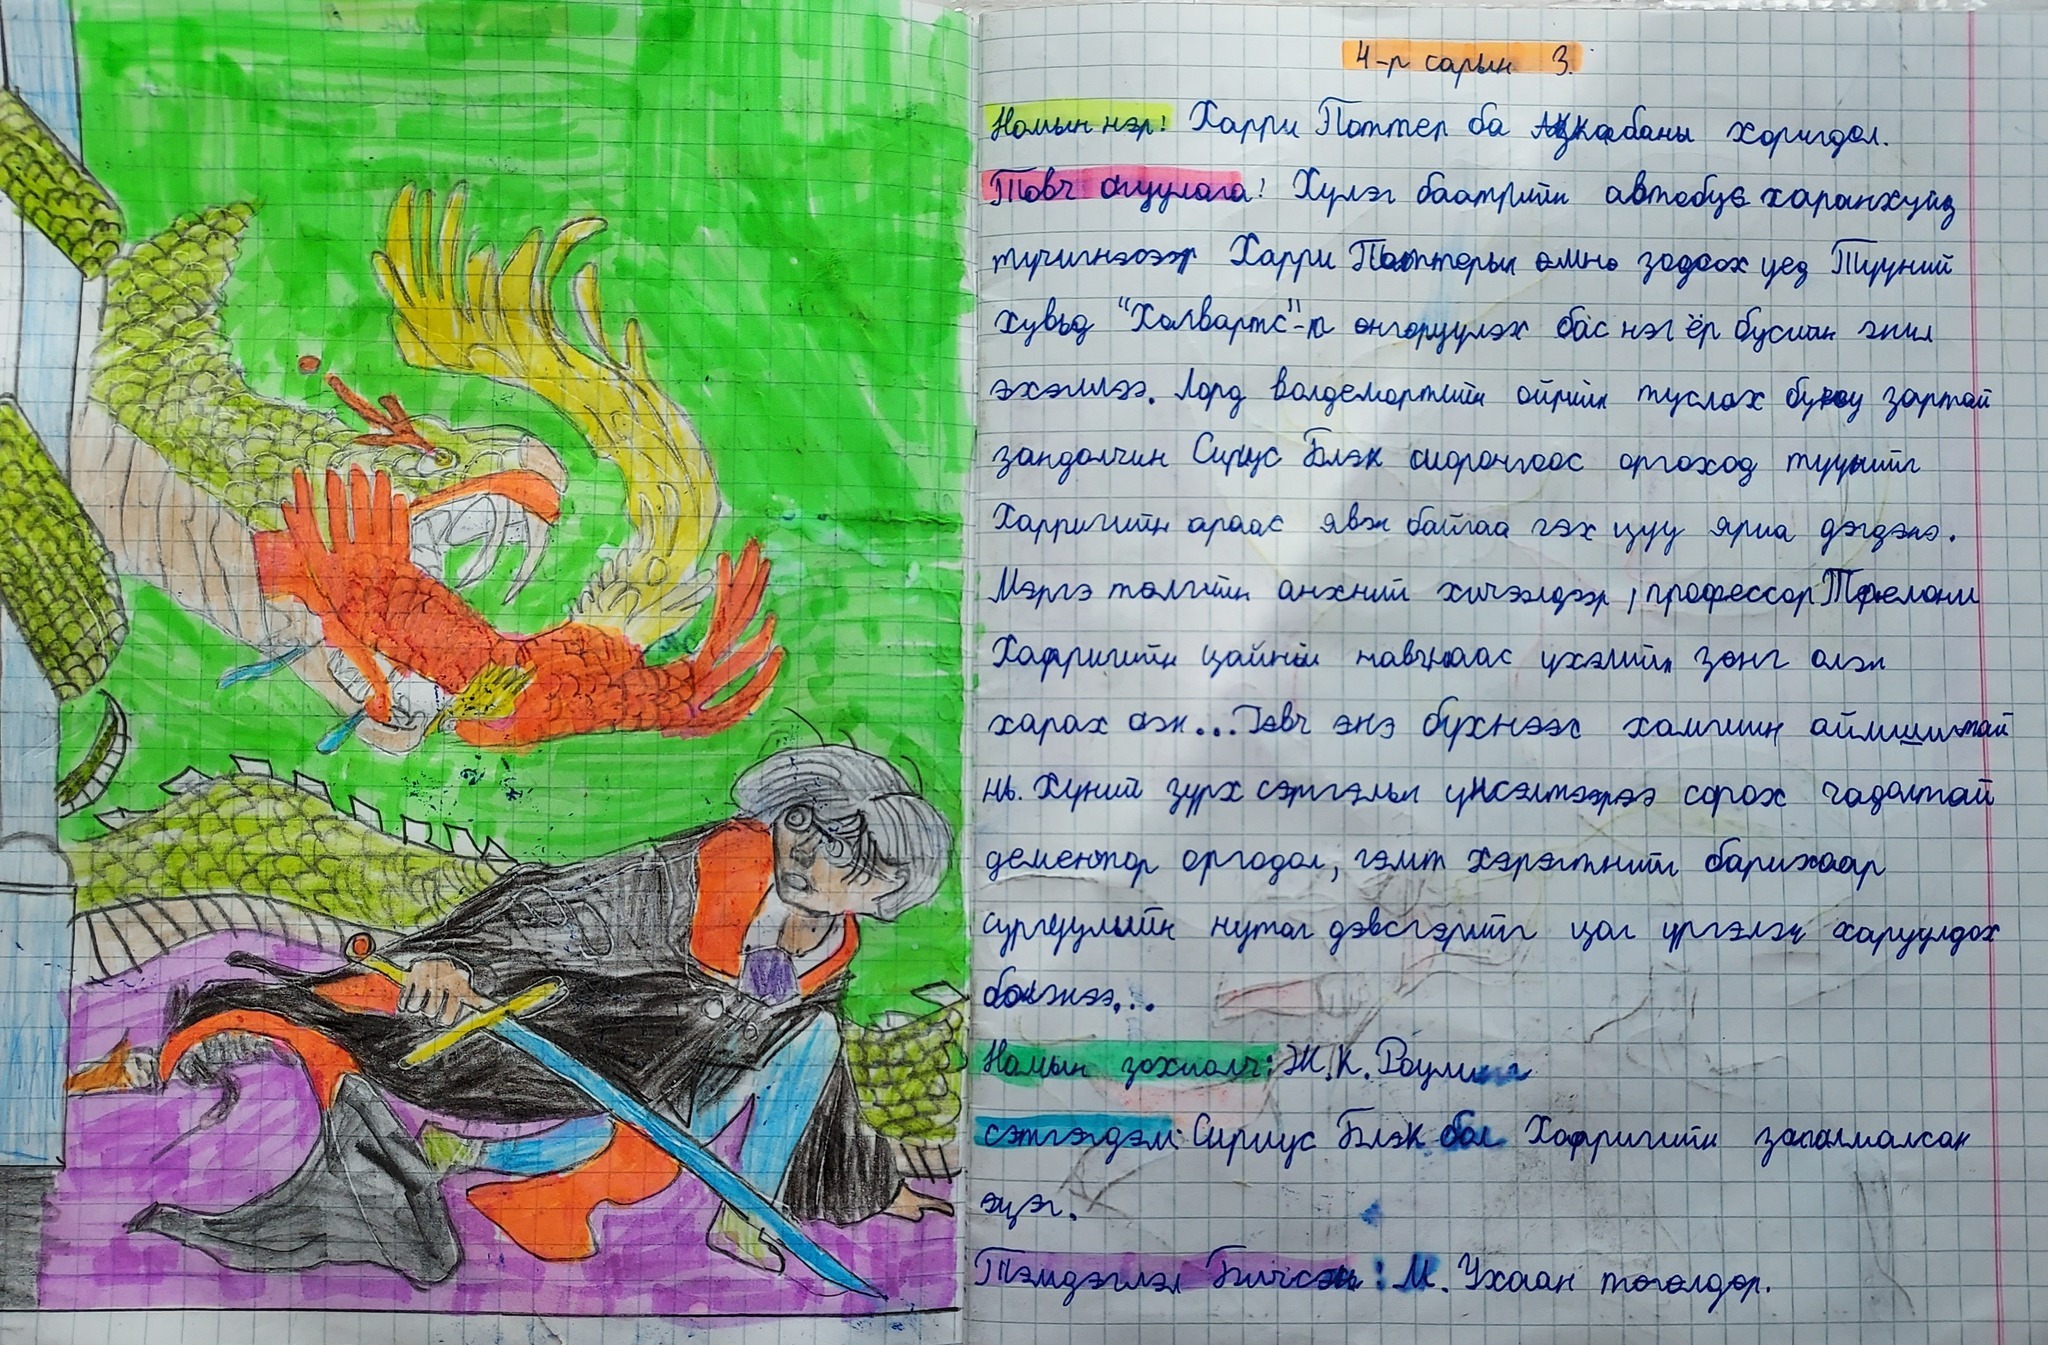 4-р сарын 3.
Номын нэр: Харри Поттер ба Азкабаны хоригдол.
Товч агуулга: Хүлэг баатрийн автобус харанхуйд
түчигнэсээр Харри Поттерын өмнө зогсох үед Түүний
хувьд "Хогвартс"-п өнгөрүүлэх бас нэг ёр бусын жил
эхэллээ. Лорд волдемортийн ойрийн туслах буюу зартай
зандалчин Сириус Блэк шоронгоос оргоход түүнийг
Харригийн араас явж байгаа гэх цуу яриа дэгдэнэ.
Мэргэ төлгийн анхний хичээлдээр, профессор Трелони
Харригийн цайны навчнаас үхэлийн зөнг олж
харах аж... Гэвч энэ бүхнээс хамгийн аймшигтай
нь. Хүний зүрх сэтгэлыг үнсэлтээрээ сорох чадалтай
дементор оргодол, гэмт хэрэгтнийг барихаар
сургуулийн нутаг дэвсгэрийг цаг үргэлж харуулдах
болжээ...
Номын зохиолч: Ж.К. Роулинг
сэтгэгдэл: Сириус Блэк бол Харригийн загалмалсан
эцэг.
Тэмдэглэл Бичсэн: М. Ухаан төгөлдөр.